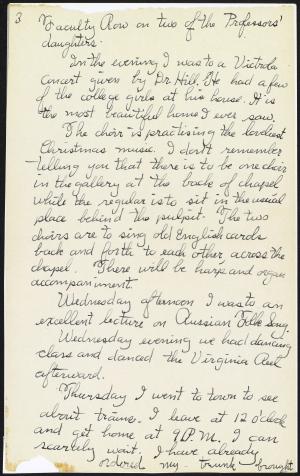 3
Faculty Row on two of the Professors'
daughters.
In the evening I was to a Victrola
concert given by Dr. Hill. He had a few
of the college girls at his house. It is
the most beautiful home I ever saw.
The choir is practising the loveliest
Christmas music. I don't remember
telling you that there is to be one choir
in the gallery at the back of chapel
while the regular is to sit in the usual
place behind the pulpit. The two
choirs are to sing old English carols
back and forth to each other across the
chapel. There will be harp and organ
accompaniment.
Wednesday afternoon I was to an
excellent lecture on Russian Folk Song.
Wednesday evening we had dancing
class and danced the Virginia Reel
afterward.
Thursday I went to town to see
about trains. I leave at 12 o'clock
and get home at 9 P.M. I can
scarcely wait. I have already
ordered my trunk brought